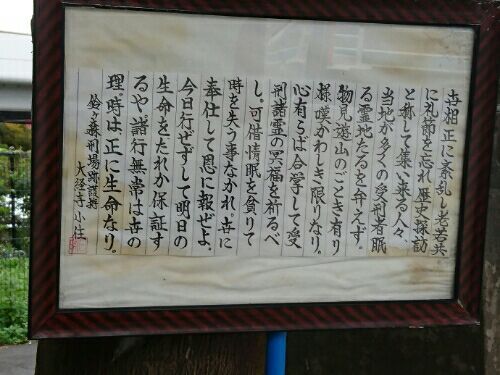 世相正に紊乱し老若共
に礼節を忘れ歴史探訪
と称して集い来る人々、
当地が多くの受刑者眠
る霊地たるを弁えず。
物見遊山のごとき有り
様嘆かわしき限りなり。
心有らば合掌して受
刑諸霊の冥福を祈るべ
し。可惜情眠を貪りて
時を失う事なかれ。世に
奉仕して恩に報ぜよ。
今日行ぜずして明日の
生命をたれか保証す
るや諸行無常は世の
理時は正に生命なり。
鈴ヶ森刑場跡護持
大経寺小住